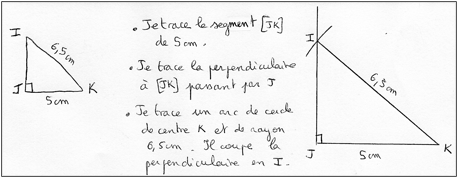 I
6,5cm
J
K
5cm
• Je trace le segment [JK]
de 5cm.
• Je trace la perpendiculaire
à [JK] passant par J
• Je trace un arc de cercle
de centre K et de rayon
6,5cm. Il coupe la
perpendiculaire en I.
I
6,5cm
J
5cm
K